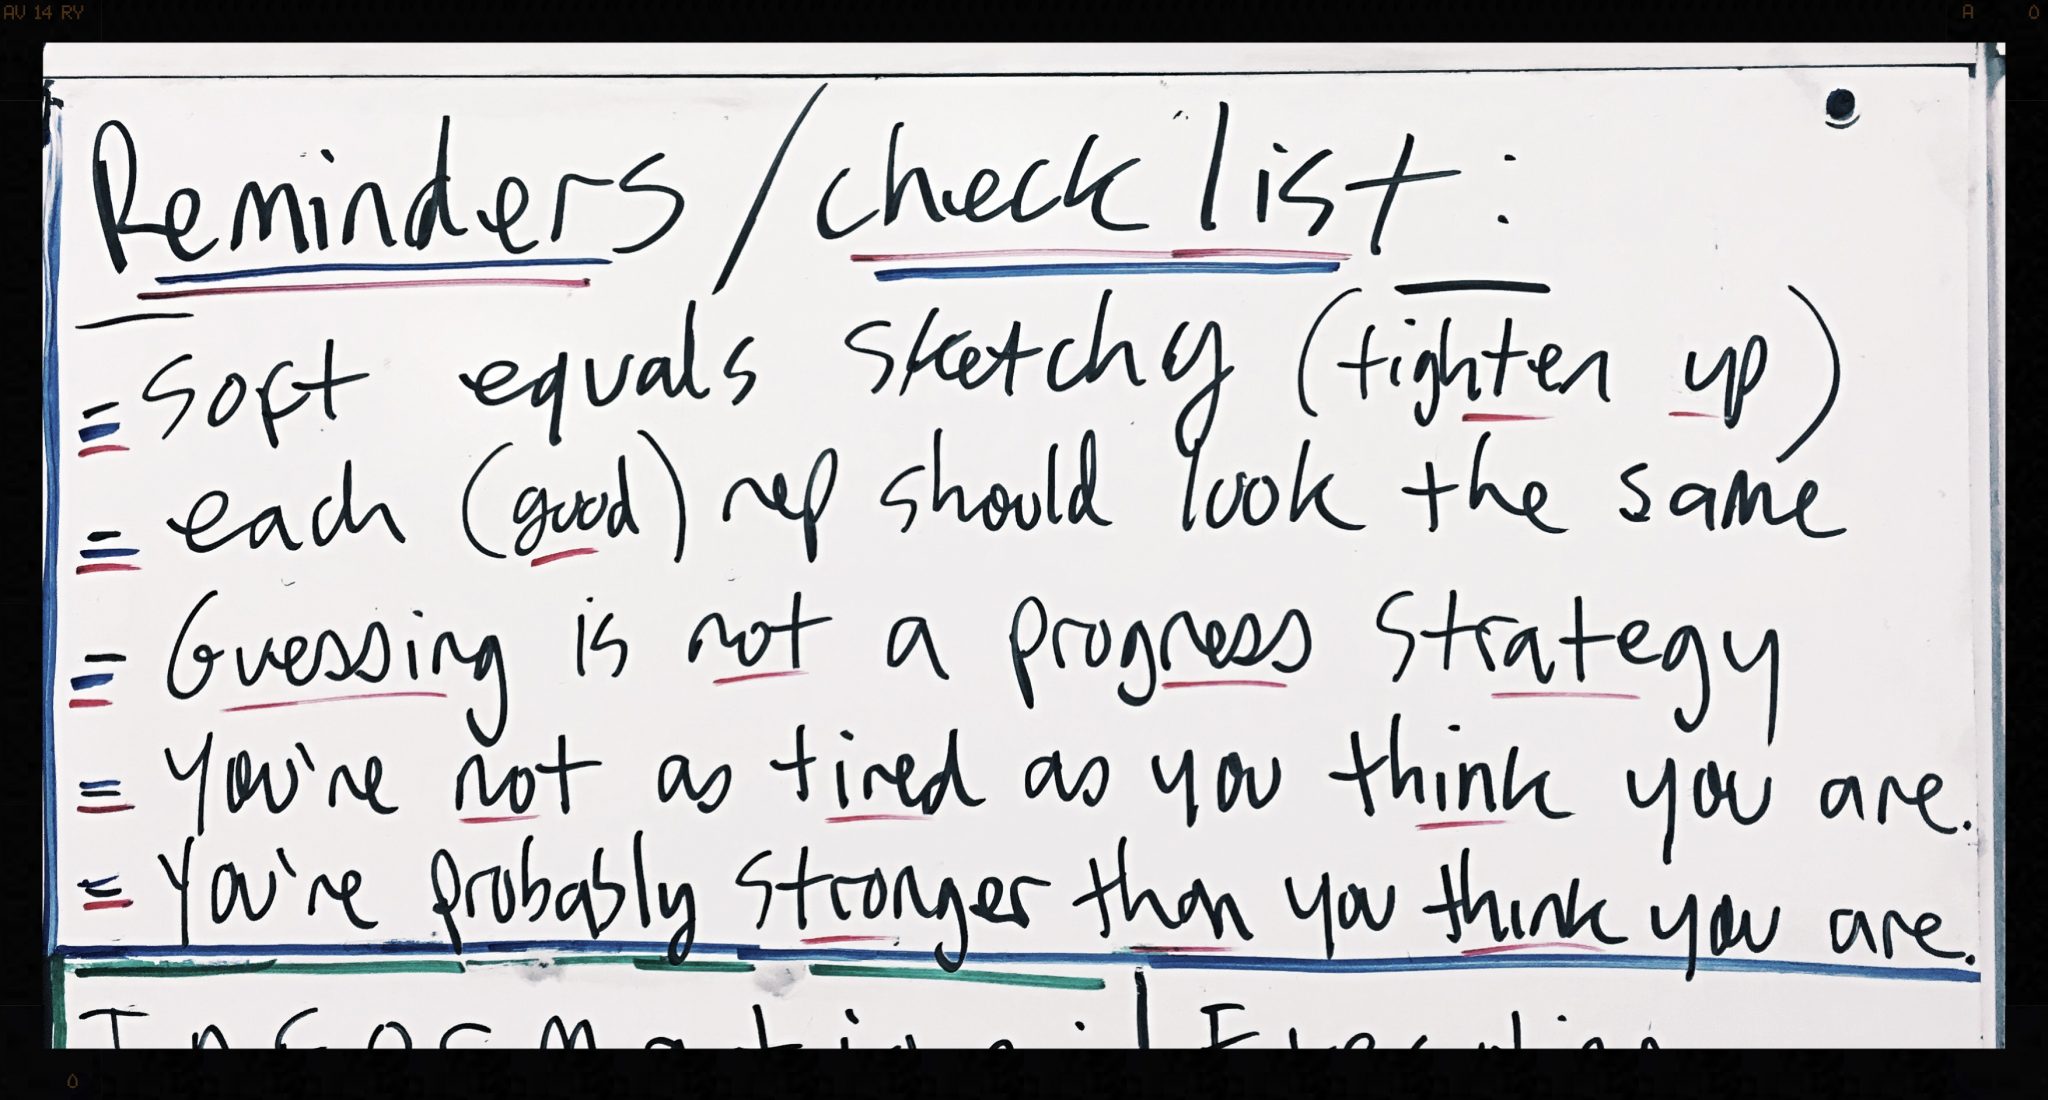 AV 14 RY
A 0
Reminders / checklist :
Soft equals sketchy (tighten up)
each (good) rep should look the same
Guessing is not a progress strategy
You're not as tired as you think you are.
You're probably stronger than you think you are.
Information :
0